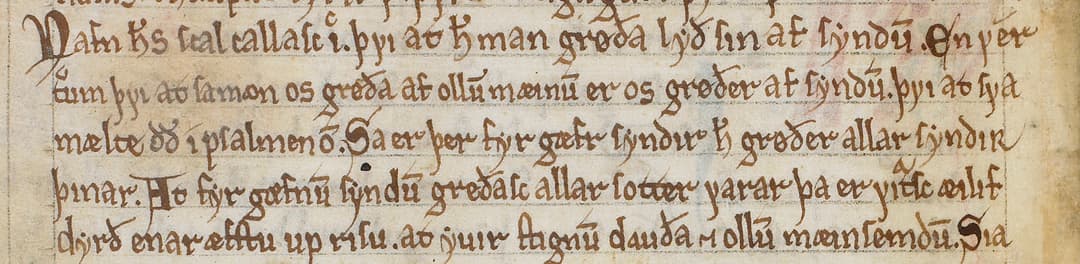 Nafn hs scal callasc i. þvi at h man grøða lyð sin af syndū. En vér
tum þvi at sa mon os grøða af ollū mæinū er os grøðer af syndū. þvi at sva
mælte dð i psalmenō. Sa er þer fyr gæfr syndir h grøðer allar syndir
þinar. At fyr gæfnū syndū greðasc allar sotter varar þa er vitasc æilif
dyrð enar æfstu up risu. at yvir stignū dauða ⁊ ollū mæinsemdū. Sia